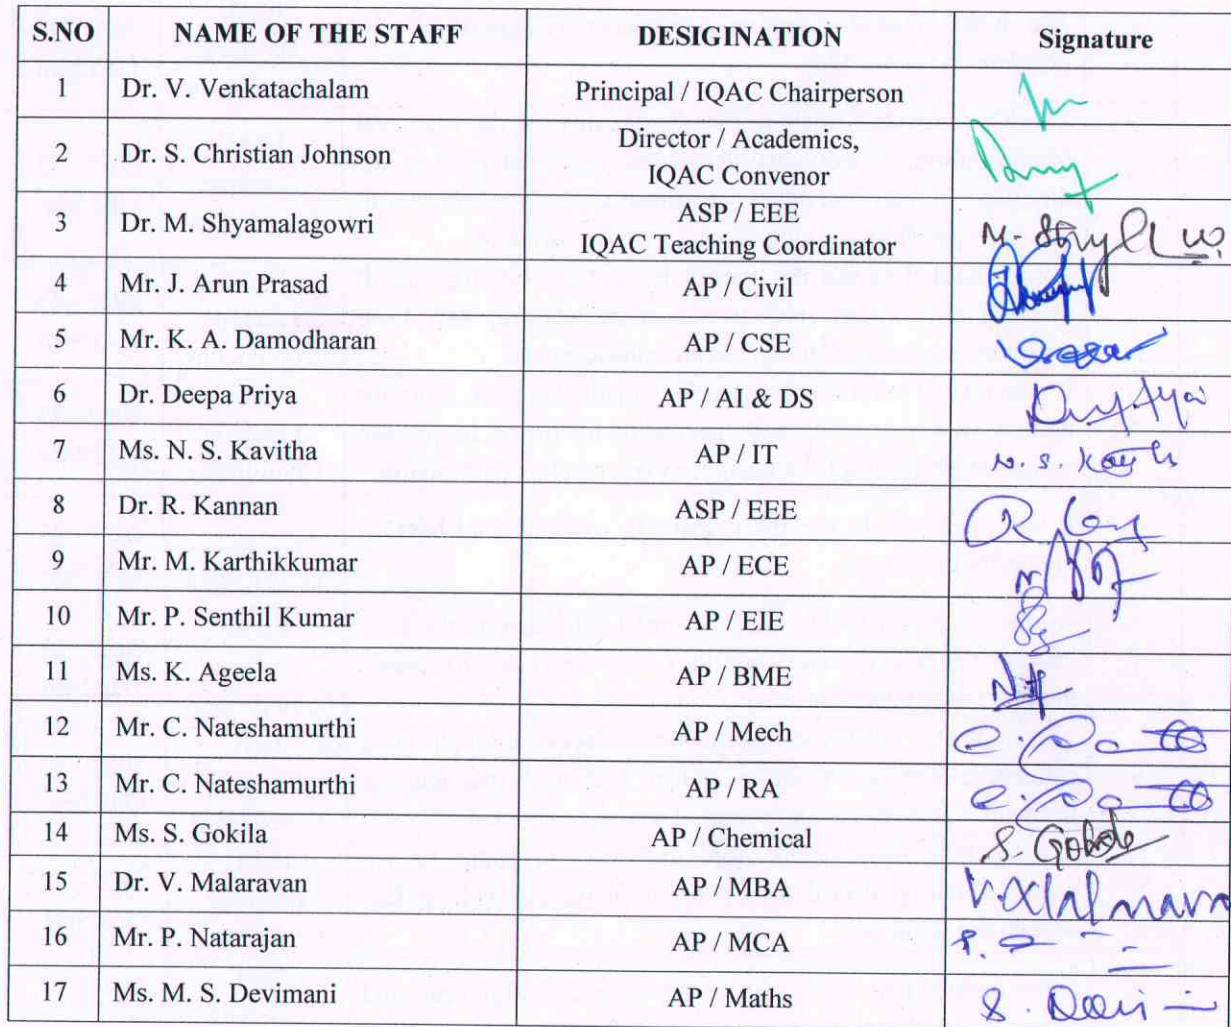 S.NO NAME OF THE STAFF DESIGINATION Signature
1 Dr. V. Venkatachalam Principal / IQAC Chairperson
2 Dr. S. Christian Johnson Director / Academics,
IQAC Convenor
3 Dr. M. Shyamalagowri ASP / EEE
IQAC Teaching Coordinator
4 Mr. J. Arun Prasad AP / Civil
5 Mr. K. A. Damodharan AP / CSE
6 Dr. Deepa Priya AP / AI & DS
7 Ms. N. S. Kavitha AP / IT N. S.
8 Dr. R. Kannan ASP / EEE R.
9 Mr. M. Karthikkumar AP / ECE
10 Mr. P. Senthil Kumar AP / EIE
11 Ms. K. Ageela AP / BME
12 Mr. C. Nateshamurthi AP / Mech
13 Mr. C. Nateshamurthi AP / RA
14 Ms. S. Gokila AP / Chemical S.
15 Dr. V. Malaravan AP / MBA
16 Mr. P. Natarajan AP / MCA
17 Ms. M. S. Devimani AP / Maths S.